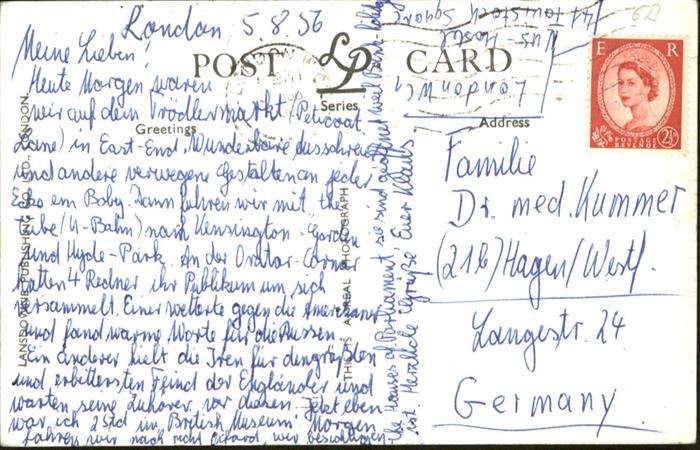 London, 5.8.56
Meine Lieben!
Heute Morgen waren
wir auf dem Trödlermarkt (Peticoat
Lane) in East-End. Wunderbare Ausschreier
und andere verwegene Gestalten an jeder
Ecke ein Bobby. Dann fuhren wir mit the
Tube (U-Bahn) nach Kensington-Garden
und Hyde-Park. An der Orator-Corner
hatten 4 Redner ihr Publikum um sich
versammelt. Einer wetterte gegen die Amerikaner
und fand warme Worte für die Russen.
Ein anderer hielt die Iren für den größten
und erbittersten Feind der Engländer und
warten seine Zuhörer vor diesen. Jetzt eben
war ich 2 Std im British Museum. Morgen
fahren wir nach
the Houses of Parliament, sie sind geöffnet weil Bank-holiday
ist. Herzliche Grüße, Euer Klaus
44 Tavistock Square
London W.C.1
POST LP CARD
Series
Greetings
Address
LANSDOWNE PUBLISHING CO., LTD., LONDON.
THIS IS A REAL PHOTOGRAPH
E R
POSTAGE
REVENUE
2½D
Familie
Dr. med. Kummer
(21b) Hagen/Westf.
Langestr. 24
Germany